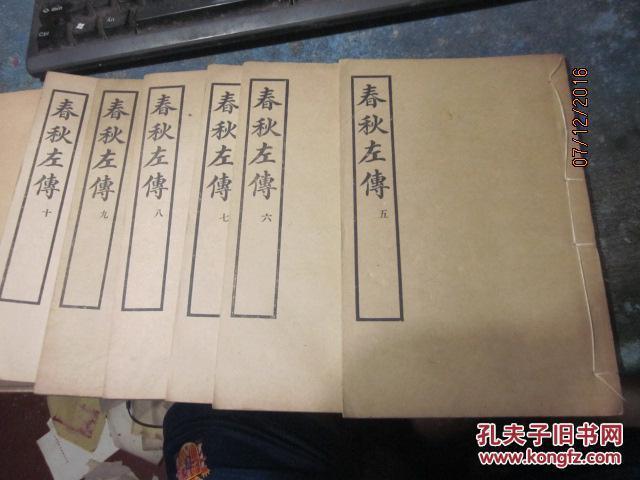 春秋左傳 五
春秋左傳 六
春秋左傳 七
春秋左傳 八
春秋左傳 九
春秋左傳 十
07/12/2016
孔夫子旧书网
www.kongfz.com